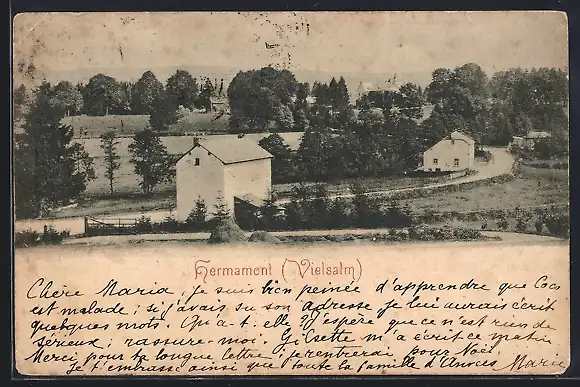 Hermamont (Vielsalm)
Chère Maria, je suis bien peinée d'apprendre que Coco
est malade; si j'avais su son adresse je lui aurais écrit
quelques mots. Qu'a-t-elle? J'espère que ce n'est rien de
sérieux; rassure-moi. Gilette m'a écrit ce matin
Merci pour ta longue lettre; je rentrerai pour Noël.
Je t'embrasse ainsi que toute la famille d'Anvers Marie